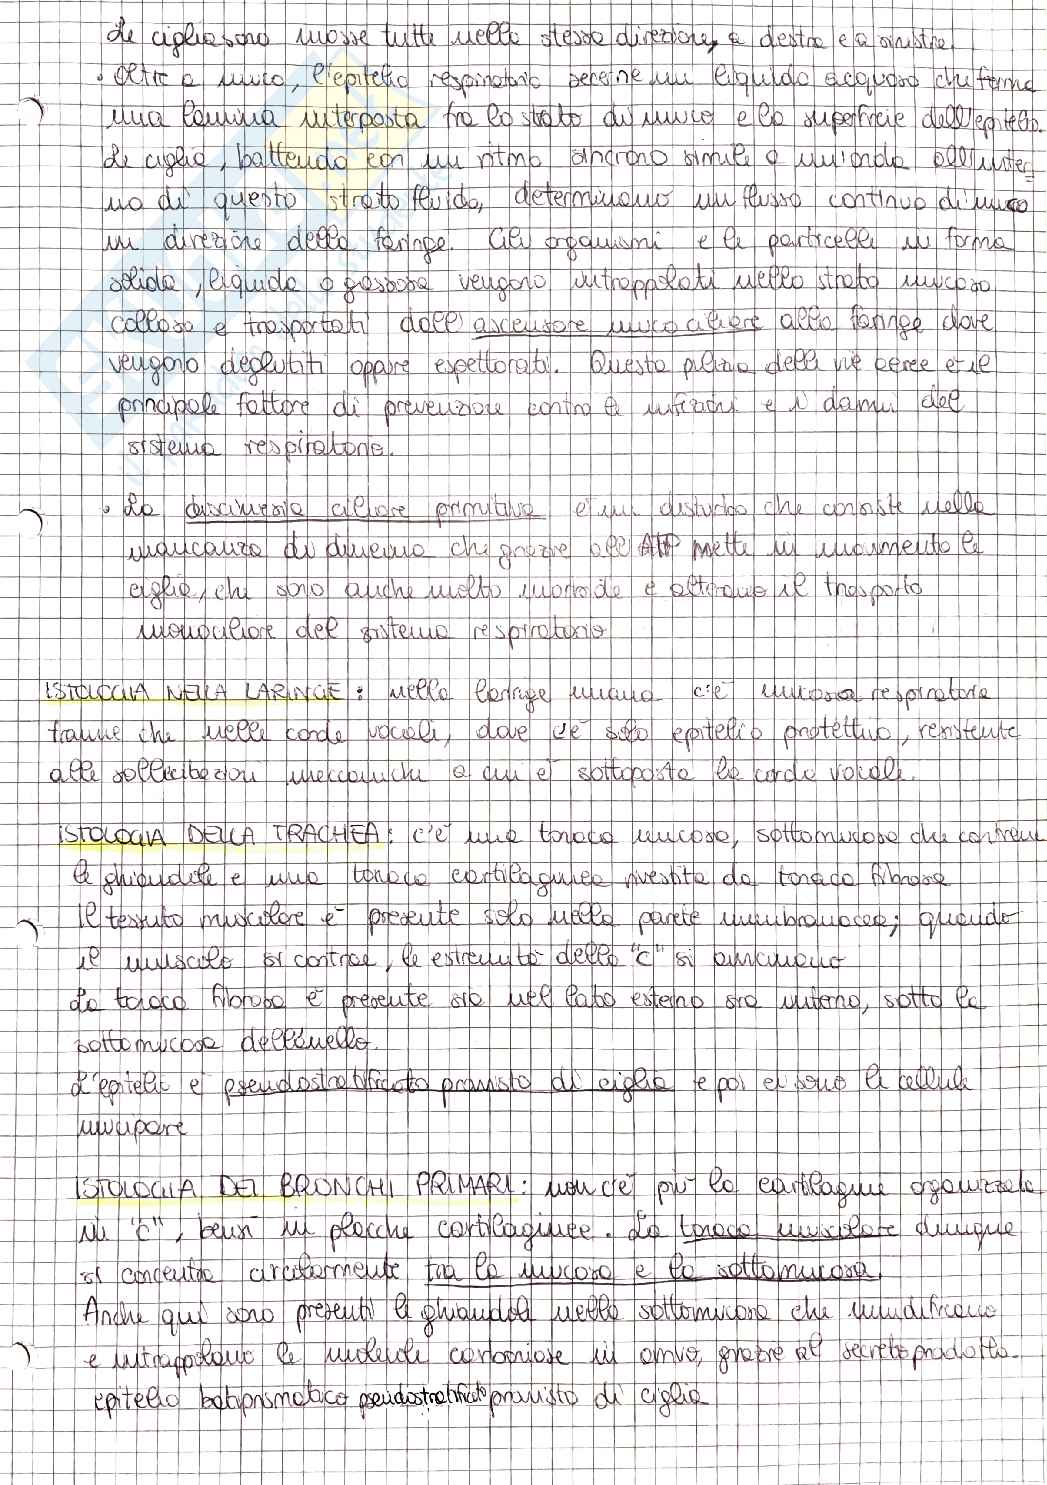 Le ciglia sono mosse tutte nella stessa direzione, a destra e a sinistra.
• Oltre a muco, l'epitelio respiratorio secerne un liquido acquoso che forma
una lamina interposta fra lo strato di muco e la superficie dell'epitelio.
Le ciglia, battendo con un ritmo sincrono simile a un'onda all'inter-
no di questo strato fluido, determinano un flusso continuo di muco
in direzione della faringe. Gli organismi e le particelle in forma
solida, liquida o gassosa vengono intrappolati nello strato mucoso
colloso e trasportati dall'ascensore mucociliare alla faringe dove
vengono deglutiti oppure espettorati. Questa pulizia delle vie aeree è il
principale fattore di prevenzione contro le infezioni e i danni del
sistema respiratorio.
• La discinesia ciliare primitiva è un disturbo che consiste nella
mancanza di dineina che grazie all'ATP mette in movimento le
ciglia, che sono anche molto e alterano il trasporto
del sistema respiratorio
ISTOLOGIA NELLA LARINGE: nella laringe umana c'è mucosa respiratoria
tranne che nelle corde vocali, dove c'è solo epitelio protettivo, resistente
alle sollecitazioni meccaniche a cui è sottoposta le corde vocali.
ISTOLOGIA DELLA TRACHEA: c'è una tonaca mucosa, sottomucosa che contiene
le ghiandole e una tonaca cartilaginea rivestita da tonaca fibrosa
Il tessuto muscolare è presente solo nella parete membranacea; quando
il muscolo si contrae, le estremità della "C" si avvicinano
La tonaca fibrosa è presente sia nel lato esterno sia interno, sotto la
sottomucosa dell'anello.
L'epitelio è pseudostratificato provvisto di ciglia e poi ci sono le cellule
mucipare
ISTOLOGIA DEI BRONCHI PRIMARI: non c'è più la cartilagine organizzata
in "C", bensì in placche cartilaginee. La tonaca muscolare dunque
si concentra circolarmente tra la mucosa e la sottomucosa.
Anche qui sono presenti le ghiandole nella sottomucosa che umidificano
e intrappolano le molecole in arrivo, grazie al secreto prodotto.
epitelio batiprismatico pseudostratificato provvisto di ciglia